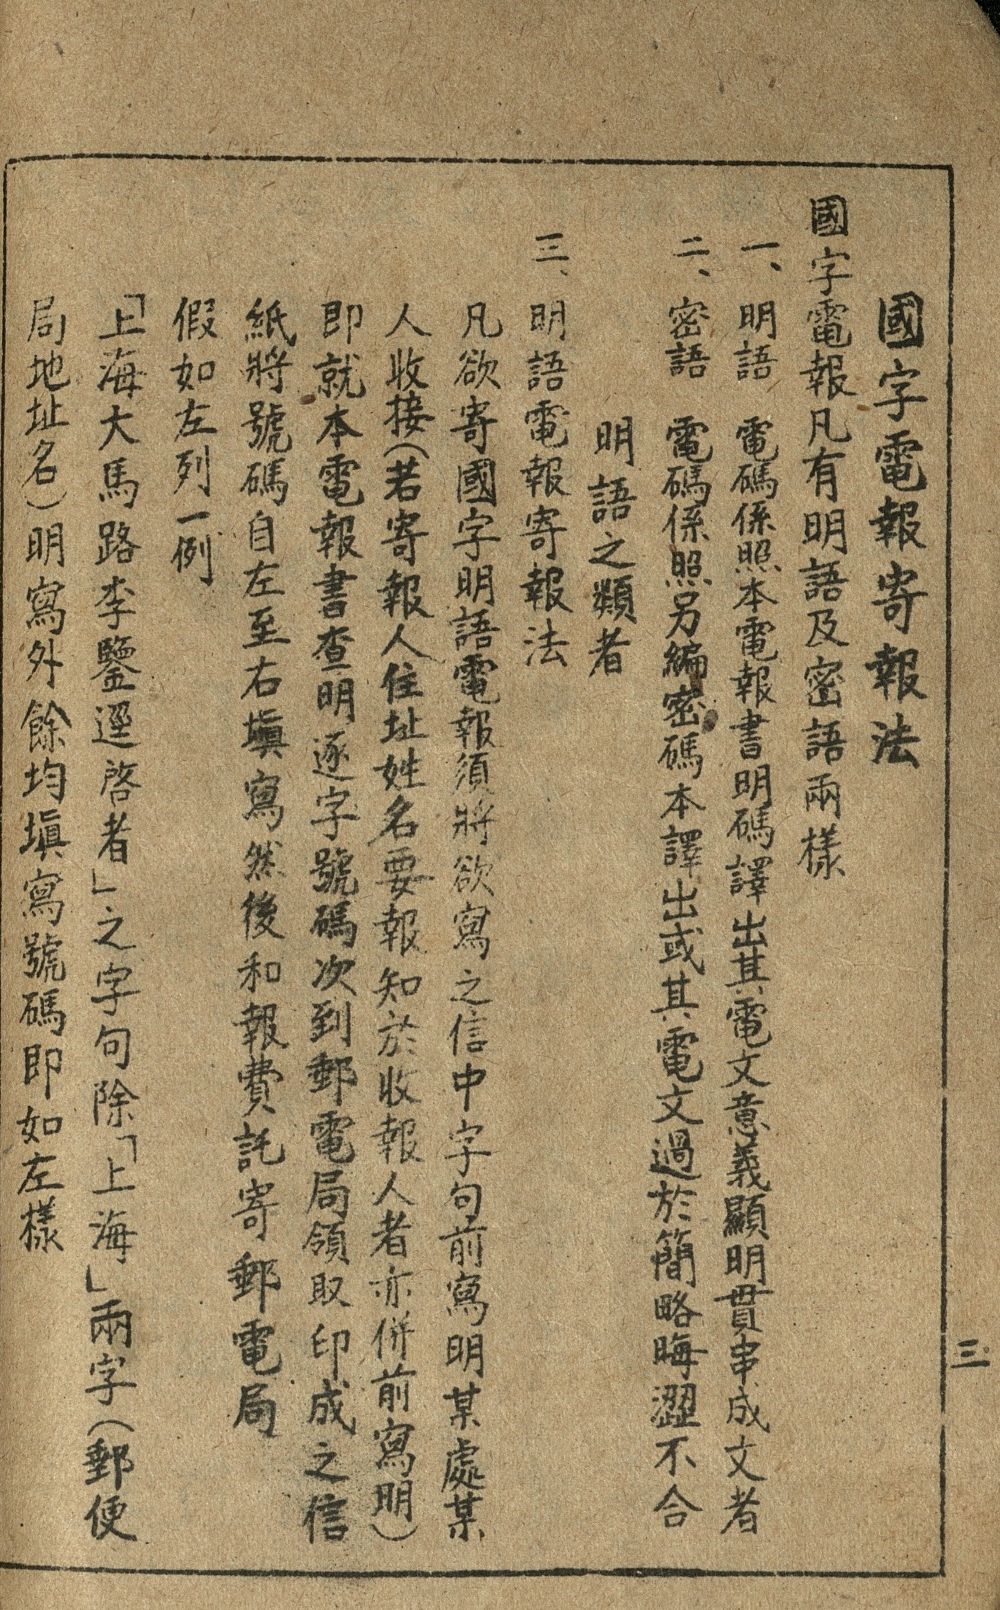 國字電報寄報法
國字電報凡有明語及密語兩樣
一、明語　電碼係照本電報書明碼譯出其電文意義顯明貫串成文者
二、密語　電碼係照另編密碼本譯出或其電文過於簡略晦澀不合
明語之類者
三、明語電報寄報法
凡欲寄國字明語電報須將欲寫之信中字句前寫明某處某
人收接(若寄報人住址姓名要報知於收報人者亦併前寫明)
即就本電報書查明逐字號碼次到郵電局領取印成之信
紙將號碼自左至右塡寫然後和報費託寄郵電局
假如左列一例
「上海大馬路李鑒逕啓者」之字句除「上海」兩字(郵便
局地址名)明寫外餘均塡寫號碼即如左樣
三